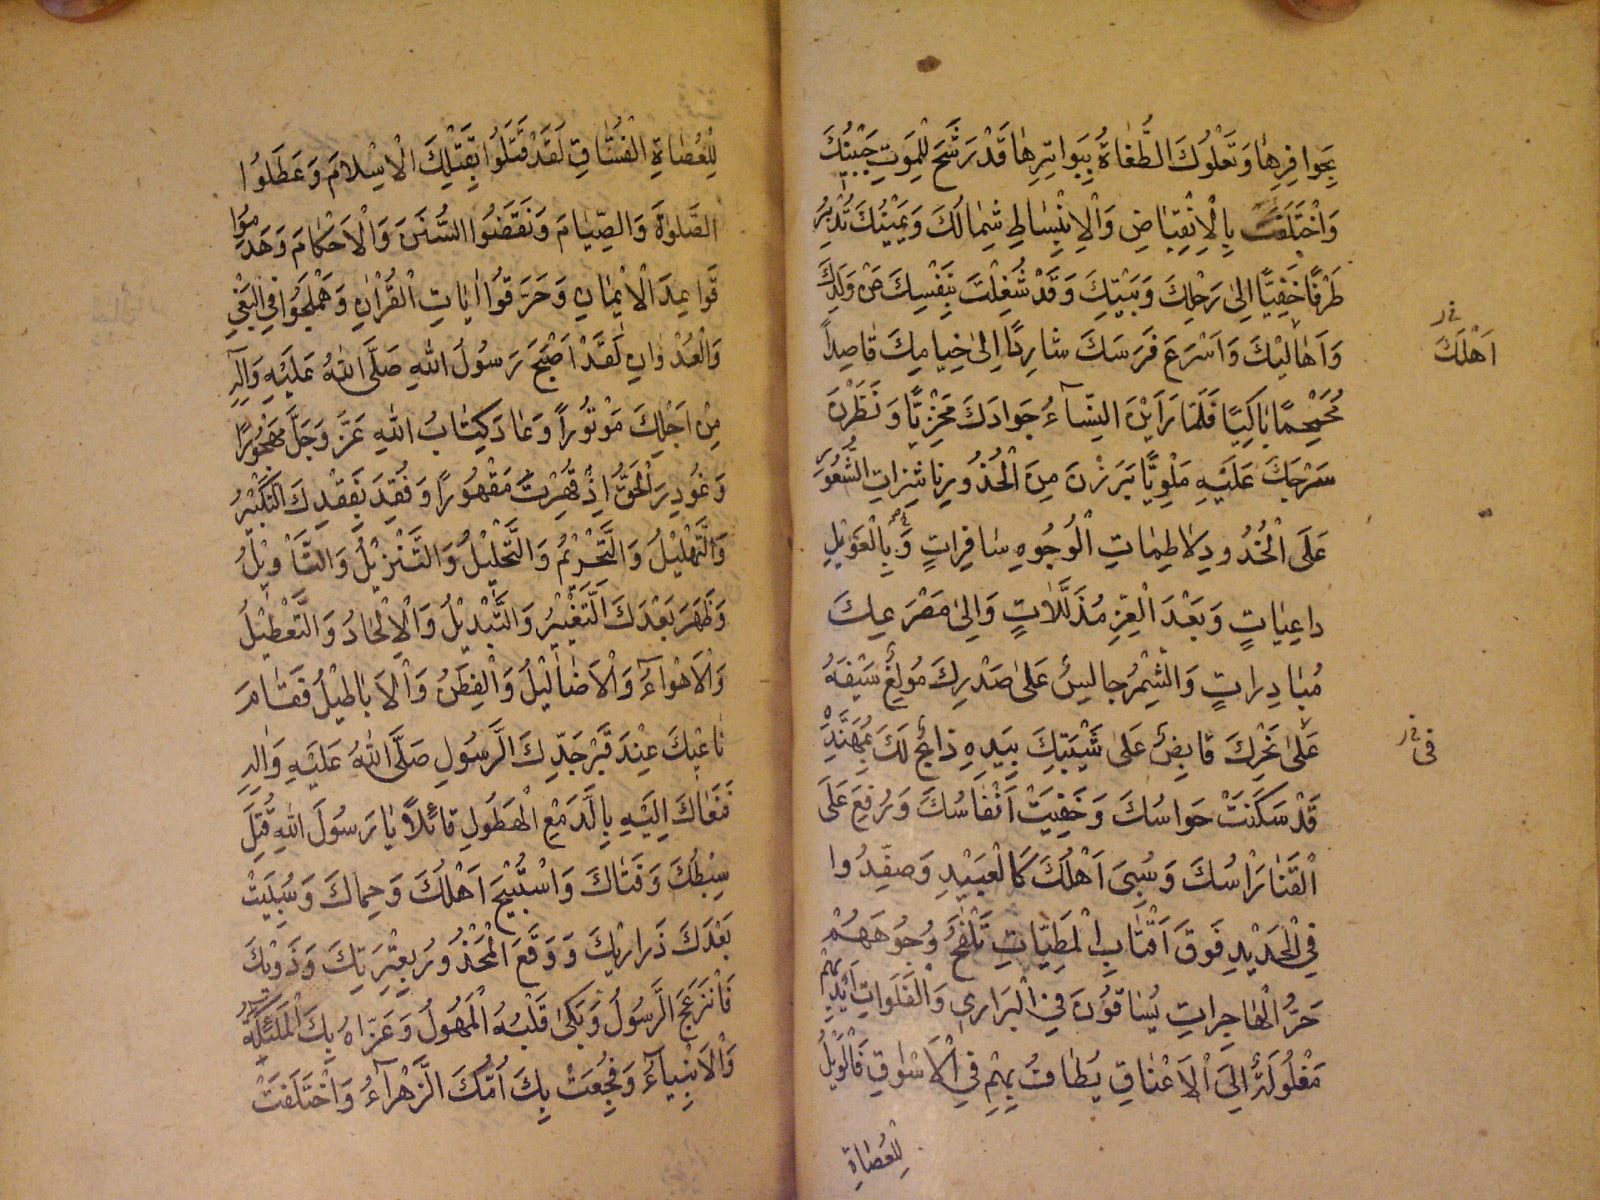 بِحَوافِرِهٰا وَتَعْلُوكَ الطُّغٰاةُ بِبَواتِرِهٰا قَدْ رَشَحَ لِلْمَوتِ جَبِينُكَ
وَاخْتَلَفَتْ بِالْاِنْقِبٰاضِ وَالْاِنْبِسٰاطِ شِمٰالُكَ وَيَمْيٖنُكَ تُدٖيرُ
طَرْفًا خَفِيًّا اِلىٰ رَحْلِكَ وَبَيْتِكَ وَقَدْ شُغِلْتَ بِنَفْسِكَ عَنْ وَلَدِكَ
وَاَهٰالٖيكَ وَاَسْرَعَ فَرَسُكَ شارِدًا اِلىٰ خِيامِكَ قاصِداً
اَهْلِكَ
مُحَمْحِمًا بٰاكِيًا فَلَمّا رَاَيْنَ النِّسآءُ جَوادَكَ مَخْزِيًّا وَنَظَرْنَ
سَرْجَكَ عَلَيْهِ مَلْوِيًّا بَرَزْنَ مِنَ الْخُدُورِ ناشِراتِ الشُّعُورِ
عَلَى الْخُدُودِ لاطِمٰاتِ الْوُجُوهِ سٰافِراتٍ وَبِالْعَوٖيلِ
داعِيٰاتٍ وَبَعْدَ الْعِزِّ مُذَلَّلاتٍ وَاِلىٰ مَصْرَعِكَ
مُبٰادِراتٍ وَالشِّمْرُ جالِسٌ عَلىٰ صَدْرِكَ مُولِغٌ سَيْفَهُ
عَلىٰ نَحْرِكَ قابِضٌ عَلىٰ شَيْبَتِكَ بِيَدِهٖ ذابِحٌ لَكَ بِمُهَنَّدِهٖ
فى
قَدْ سَكَنَتْ حَواسُكَ وَخَفِيَتْ اَنْفٰاسُكَ وَرُفِعَ عَلَى
الْقَنٰا رَاْسُكَ وَسُبِىَ اَهْلُكَ كَالْعَبٖيدِ وَصُفِّدُوا
فِى الْحَدٖيدِ فَوقَ اَقْتٰابِ الْمَطِيّٰاتِ تَلْفَحُ وُجُوهَهُمْ
حَرُّ الْهٰاجِراتِ يُسٰاقُونَ فِى الْبَرارى وَالْفَلَواتِ اَيْدٖيهِمْ
مَغْلُولَةٌ اِلَى الْاَعْنٰاقِ يُطٰافُ بِهِمْ فِى الْاَسْوٰاقِ فَالْوَيْلُ
لِلْعُصٰاةِ
لِلْعُصٰاةِ الْفُسّٰاقِ لَقَدْ قَتَلُوا بِقَتْلِكَ الْاِسْلامَ وَعَطَّلُوا
الصَّلوٰةَ وَالصِّيٰامَ وَنَقَضُوا السُّنَنَ وَالْاَحْكامَ وَهَدَمُوا
قَواعِدَ الْاٖيمٰانِ وَحَرَّفُوا اٰيٰاتِ الْقُرْاٰنِ وَهَمْلَجُوا فِى الْبَغْىِ
وَالْعُدْوٰانِ لَقَدْ اَصْبَحَ رَسُولُ اللهِ صَلَّى اللهُ عَلَيْهِ وَاٰلِهٖ
مِنْ اَجْلِكَ مَوْتُوراً وَعٰادَ كِتٰابُ اللهِ عَزَّ وَجَلَّ مَهْجُورًا
وَغُودِرَ الْحَقُّ اِذْ قُهِرْتَ مَقْهُورًا وَفُقِدَ بِفَقْدِكَ التَّكْبٖيرُ
وَالتَّهْلٖيلُ وَالتَّحْرٖيمُ وَالتَّحْلٖيلُ وَالتَّنْزٖيلُ وَالتَّاْوٖيلُ
وَظَهَرَ بَعْدَكَ التَّغْيٖيرُ وَالتَّبْدٖيلُ وَالْاِلْحٰادُ وَالتَّعْطٖيلُ
وَالْاَهْوآءُ وَالْاَضٰالٖيلُ وَالْفِتَنُ وَالْاَبٰاطٖيلُ فَقٰامَ
نٰاعٖيكَ عِنْدَ قَبْرِ جَدِّكَ الرَّسُولِ صَلَّى اللهُ عَلَيْهِ وَاٰلِهٖ
فَنَعٰاكَ اِلَيْهِ بِالدَّمْعِ الْهَطُولِ قائِلاً يٰا رَسُولَ اللهِ قُتِلَ
سِبْطُكَ وَفَتٰاكَ وَاسْتُبٖيحَ اَهْلُكَ وَحِماكَ وَسُبِيَتْ
بَعْدَكَ ذَرارٖيكَ وَوَقَعَ الْمَحْذُورُ بِعِتْرَتِكَ وَذَوٖيكَ
فَانْزَعَجَ الرَّسُولُ وَبَكىٰ قَلْبُهُ الْمَهُولُ وَعَزّاهُ بِكَ الْمَلٰئِكَةُ
وَالْاَنْبِيآءُ وَفُجِعَتْ بِكَ اُمُّكَ الزَّهْرآءُ وَاخْتَلَفَتْ